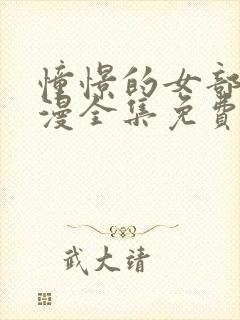 憧憬的女部
漫全集免費
武大靖